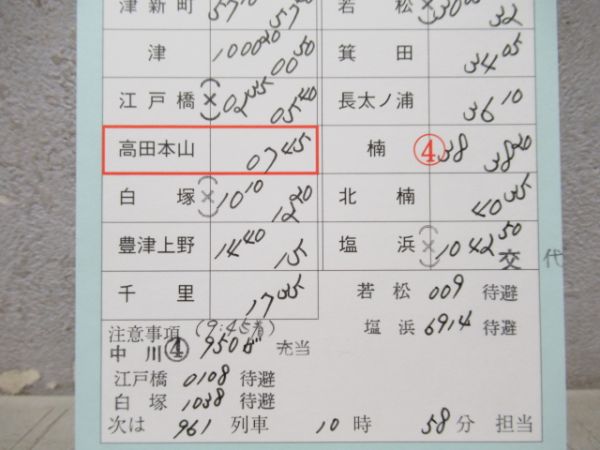 津新町 57
津 10 00 20 00 50
江戸橋 × 02 35 05 40
高田本山 07 45
白塚 × 10 10 12 20
豊津上野 14 40 15
千里 17 35
若松 × 30 32
箕田 34 05
長太ノ浦 36 10
楠 ④ 38 38 20
北楠 40 35
塩浜 × 10 42 50
交代
若松 009 待避
塩浜 6914 待避
注意事項 (9:45着)
中川 ④ 950 充当
江戸橋 0108 待避
白塚 1038 待避
次は 961 列車 10 時 58 分 担当